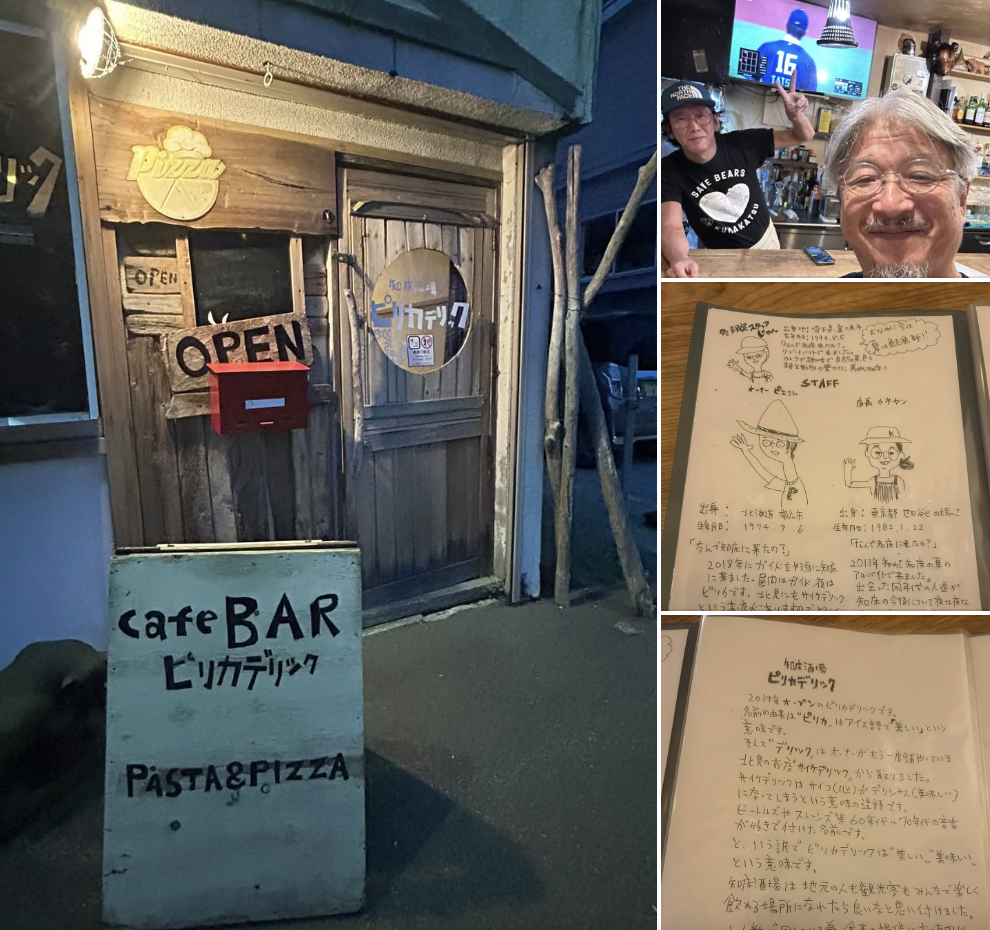 Pizza
OPEN
OPEN
知床酒場
ピリカデリック
cafe BAR
ピリカデリック
PASTA&PIZZA
リック
THE
NORTH
FACE
16
TATS
SAVE BEARS
KUMAKATSU
STAFF
オーナー ピエさん
店長 カナヤン
出身:北海道
出身:東京都 世田谷
生年月日:1974.9.6
生年月日:1982.1.22
「なんで知床に来たの?」
「なんで知床に来たの?」
2018年にガイドを
に来ました。昼間はガイド、夜は
ピリカです。北見にもサイケデリック
2013年初めて知床の夏の
アルバイトで来ました。
出会った同年代の人達が
知床酒場
ピリカデリック
2019年オープンのピリカデリックです。
名前の由来は"ピリカ"はアイヌ語で"美しい"という
意味です。
そして"デリック"はオーナーがもう一店舗やっている
北見のお店"サイケデリック"から取りました。
サイケデリックはサイコ(心)がデリシャス(美味しい)
になってしまうという意味の造語です。
ビートルズやストーンズ等60年代〜70年代の音楽
が好きで付けた名前です。
と、いう訳でピリカデリックは"美しい""美味しい"
という意味です。
知床酒場は地元の人も観光客もみんなで楽しく
飲める場所になれたら良いなと思い付けました。